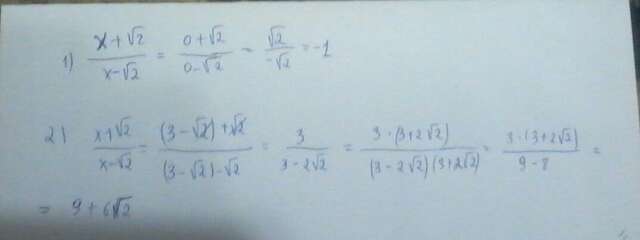 1) (x+√2)/(x-√2) = (0+√2)/(0-√2) = √2/(-√2) = -1
2) (x+√2)/(x-√2) = ((3-√2)+√2)/((3-√2)-√2) = 3/(3-2√2) = (3·(3+2√2))/((3-2√2)(3+2√2)) = (3·(3+2√2))/(9-8) =
= 9+6√2